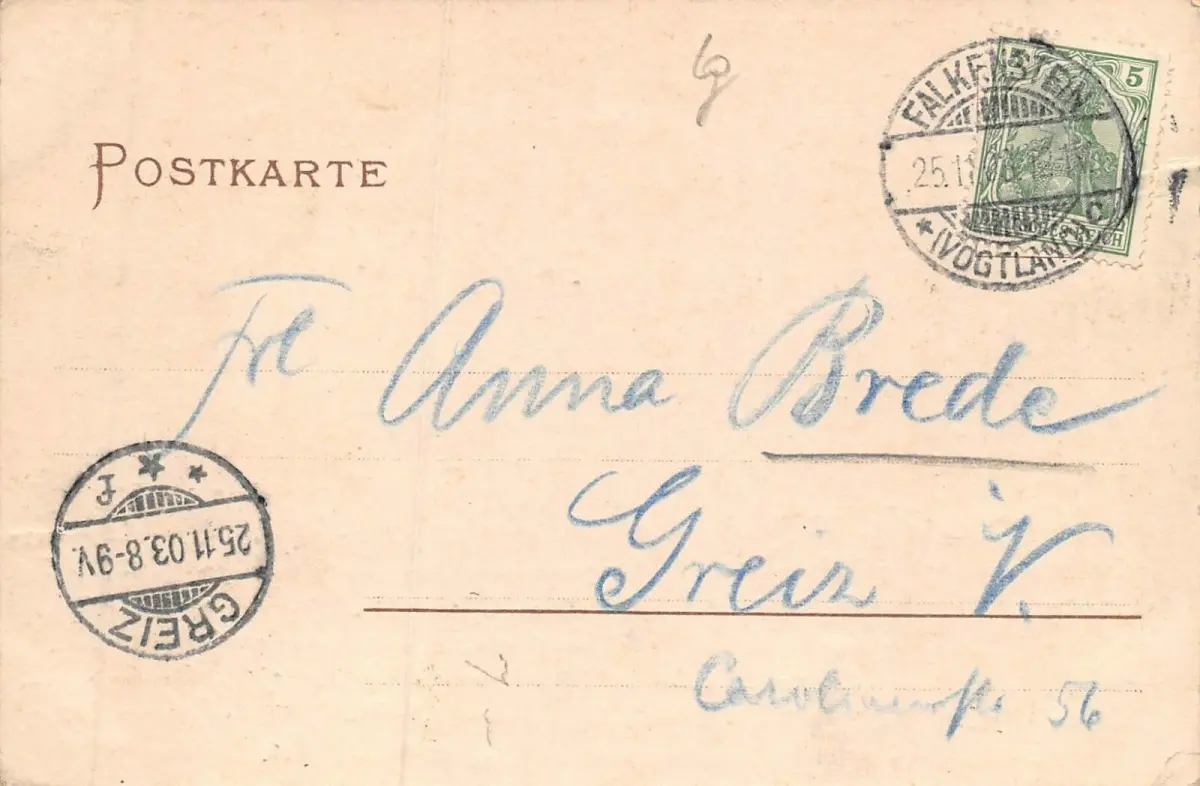 POSTKARTE
FALKENSTEIN
25.11.03
* (VOGTLAND)
5
REICH
Frl Anna Brede
Greiz V.
Carolinenstr 56
GREIZ
25.11.03.8-9V.